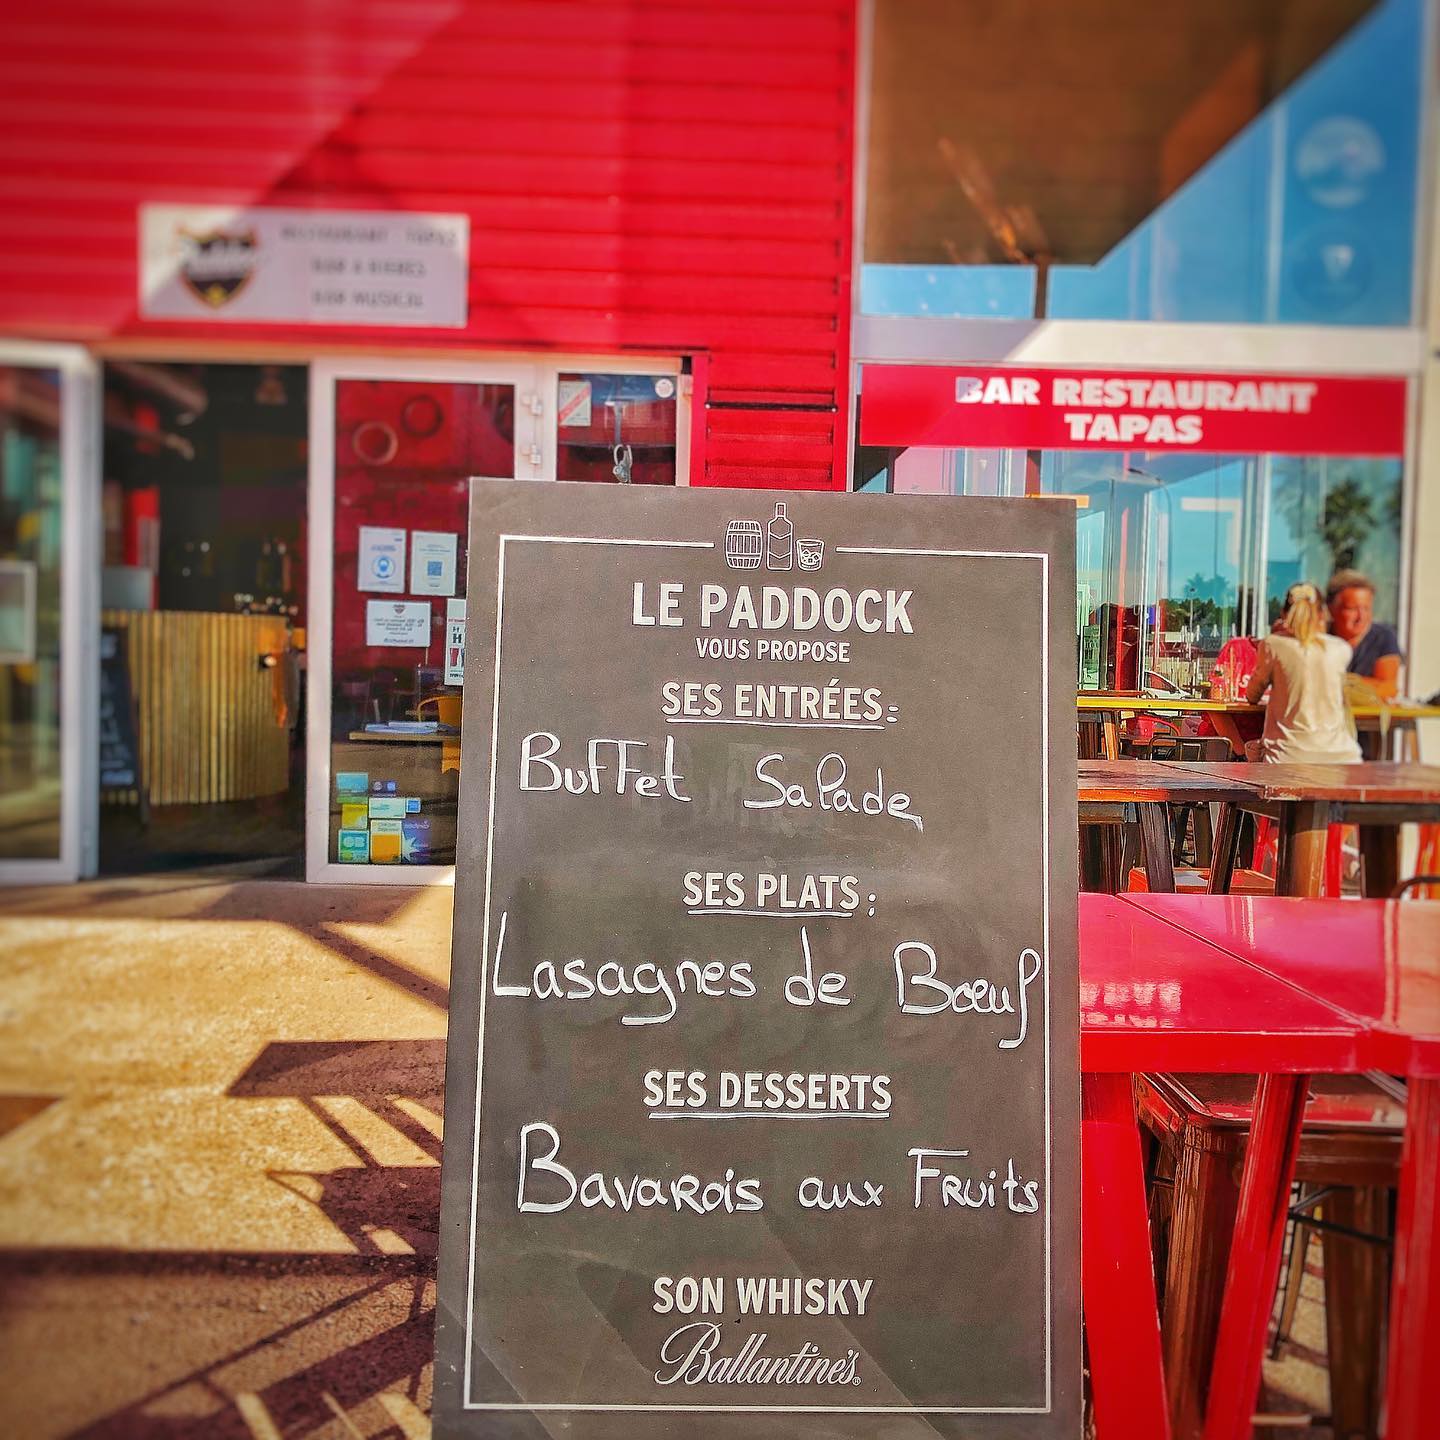 RESTAURANT - TAPAS
BAR A BIERES
BAR MUSICAL
BAR RESTAURANT
TAPAS
LE PADDOCK
VOUS PROPOSE
SES ENTRÉES:
Buffet Salade
SES PLATS:
Lasagnes de Bœuf
SES DESSERTS
Bavarois aux Fruits
SON WHISKY
Ballantine's®